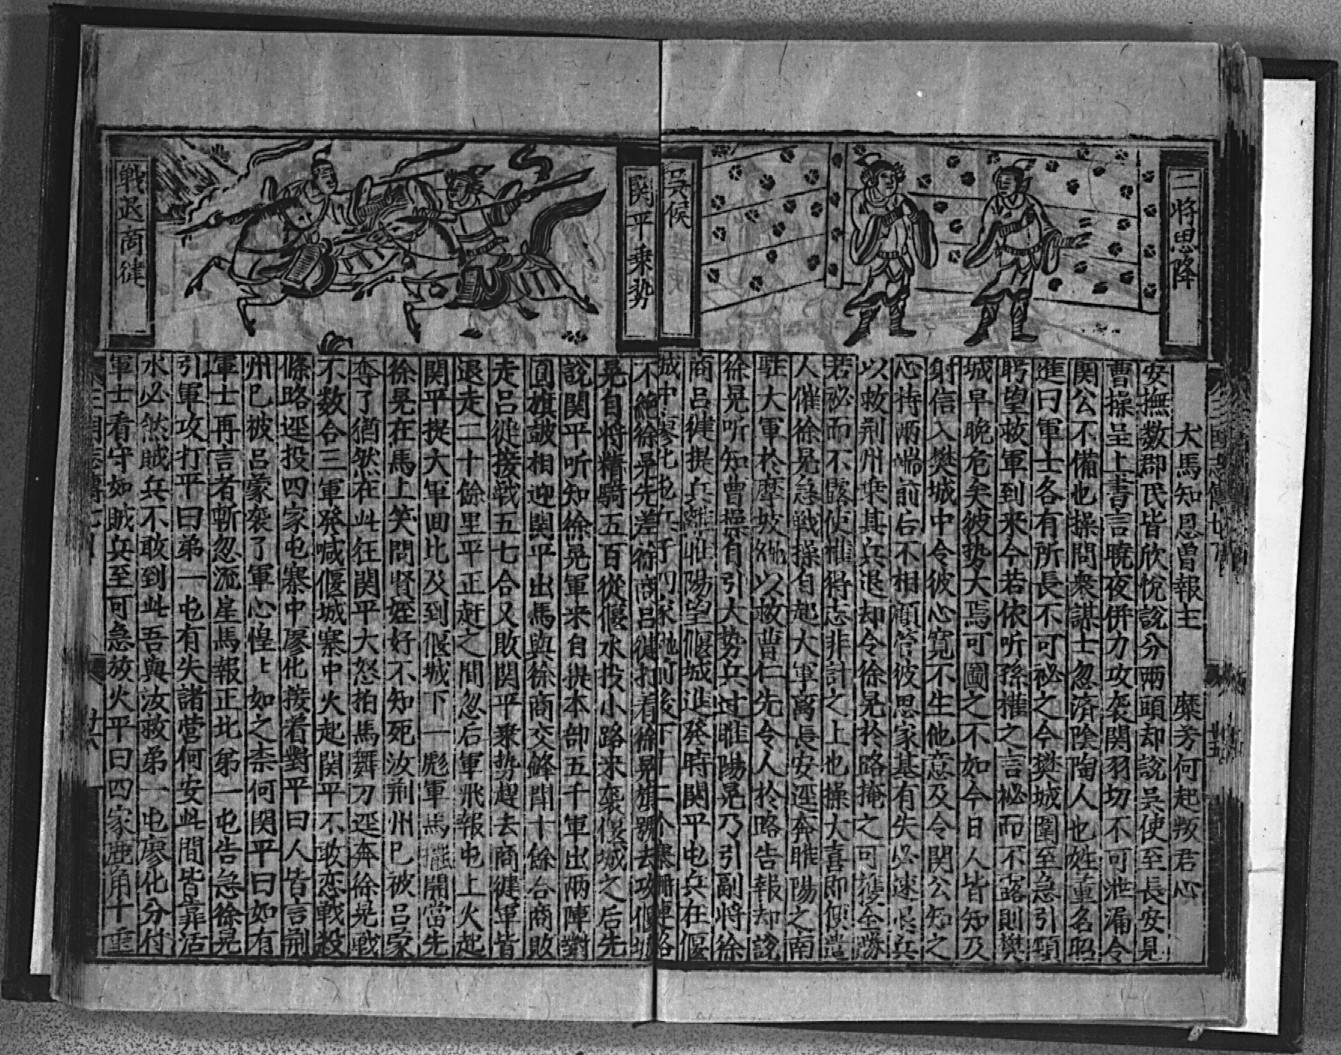 二將思降
吳侯
犬馬知恩曾報主　糜芳何起叛君心
安撫数郡民皆欣悅說分兩頭却說吳使至長安見
曹操呈上書言曉夜併力攻袭関羽切不可泄漏令
関公不備也操問衆謀士忽濟陰陶人也姓董名昭
進曰軍士各有所長不可祕之今樊城圍至急引頸
聘望救軍到来今若依听孫權之言祕而不露則樊
城早晚危矣彼势大焉可圖之不如今日人皆知乃
射信入樊城中令彼心寬不生他意及令関公知之
心持兩喘前后不相顧答彼思家基有失必速退兵
以救荆州乗其兵退却令徐晃於路掩之可獲全勝
若祕而不露使權得志非計之上也操大喜即便遣
人催徐晃急戰操自起大軍离長安迳奔睢陽之南
駐大軍於摩坡以救曹仁先令人於路告報却說
徐晃听知曹操自引大势兵过睢陽晃乃引副将徐
商呂徤提兵離睢陽望偃城進発時関平屯兵在偃
城中廖化屯兵于四冢前後下十二个寨柵連絡
不絶徐晃先差徐商呂徤打着徐晃旗號去攻偃城
関平乗势
戰退商徤
晃自将精騎五百從偃水投小路来袭偃城之后先
說関平听知徐晃軍来自提本部五千軍出兩陣對
圓旗鼓相迎関平出馬與徐商交鋒閗十餘合商敗
走呂徤接戰五七合又敗関平乗势趕去商徤軍皆
退走二十餘里平正赶之間忽后軍飛報屯上火起
関平提大軍囬比及到偃城下一彪軍馬擺開當先
徐晃在馬上笑問賢姪好不知死汝荆州巳被呂蒙
奪了猶然在此狂関平大怒拍馬舞刀迳奔徐晃戰
不数合三軍発喊偃城寨中火起関平不敢恋戰殺
條路迳投四冢屯寨中廖化接着對平曰人皆言荆
州巳被呂蒙袭了軍心惶上如之柰何関平曰如有
軍士再言者斬忽流星馬報正北第一屯告急徐晃
引軍攻打平曰弟一屯有失諸营何安此間皆靠沽
水必然賊兵不敢到此吾與汝救弟一屯廖化分付
軍士看守如賊兵至可急放火平曰四冢鹿角十重